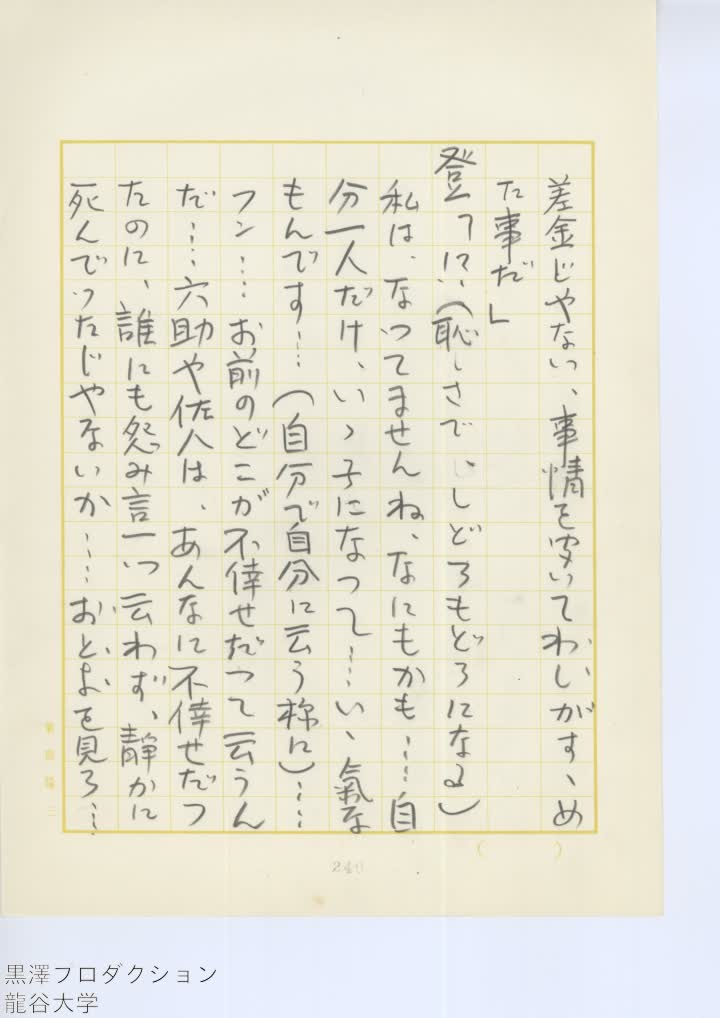 差金じやない、事情を聞いてわしがすゝめ
た事だ」
登「　　(恥しさで、しどろもどろになる)
私は、なつてませんね、なにもかも……自
分一人だけ、いゝ子になつて……い、氣な
もんです……(自分で自分に云う様に)……
フン……お前のどこが不倖せだつて云うん
だ……六助や佐八は、あんなに不倖せだつ
たのに、誰にも怨み言一つ云わず、靜かに
死んでつたじやないか……おとよを見ろ……
(　　)
240
黒澤プロダクション
龍谷大学